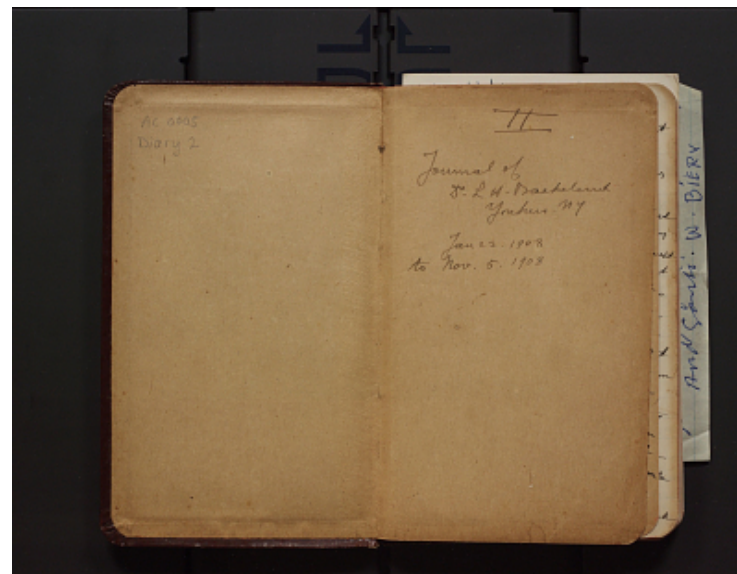 AC 0005
Diary 2
1
II
Journal of
Dr. L. H. Baekeland
Yonkers. NY
Jan 22. 1908
to Nov. 5. 1908
W. DIERY